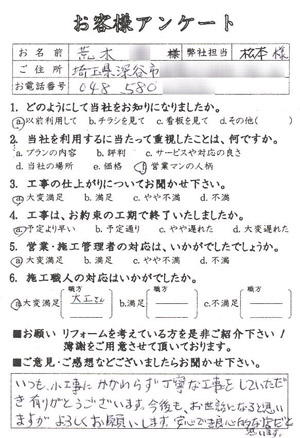 お客様アンケート
お名前 荒木 様 弊社担当 松本 様
ご住所 埼玉県深谷市
お電話番号 048 580
1. どのようにして当社をお知りになりましたか。
a.以前利用して b.チラシを見て c.看板を見て d.その他( )
2. 当社を利用するに当たって重視したことは、何ですか。
a.プランの内容 b.評判 c.サービスや対応の良さ
d.当社の場所 e.価格 f.営業マンの人柄
3. 工事の仕上がりについてお聞かせ下さい。
a.大変満足 b.満足 c.やや不満 d.不満
4. 工事は、お約束の工期で終了いたしましたか。
a.予定より早い b.予定通り c.やや遅れた d.大変遅れた
5. 営業・施工管理者の対応は、いかがでしたでしょうか。
a.大変満足 b.満足 c.やや不満 d.不満
6. 施工職人の対応はいかがでしたか。
a.大変満足 職方 大工さん b.満足 職方 c.不満 職方
■お願い リフォームを考えている方を是非ご紹介下さい!
薄謝をご用意させて頂いております。
■ご意見・ご感想などございましたらお聞かせ下さい。
いつも、小工事にかかわらず丁寧な工事をしていただき
有りがとうございます。今後も、お世話になると思い
ますが よろしくお願いします。安心で良心的な店だと
思います。